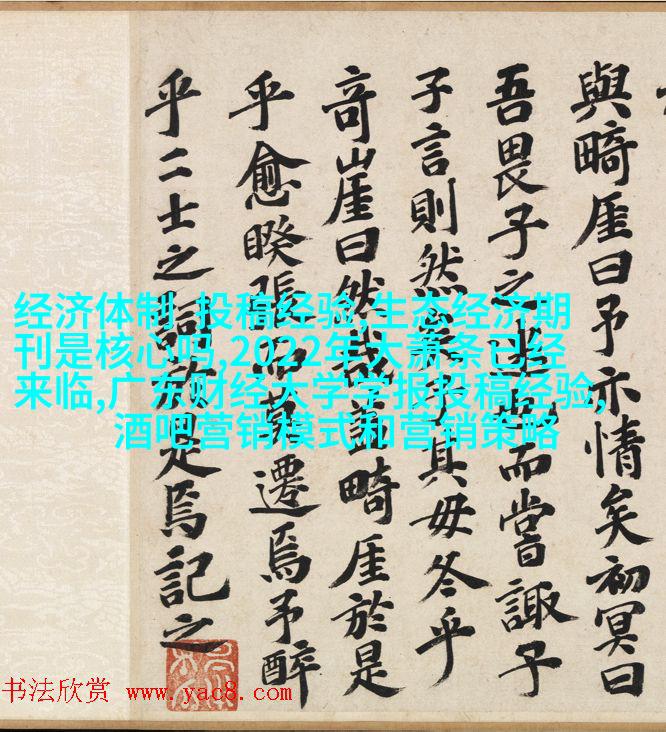 與畸厓曰予亦情矣初冥曰
吾畏子之而嘗諏子
子言則然其毋冬乎
竒崖曰然哉畸厓於是
乎愈睽張而遷焉予醉
乎二士之詞是焉記之
经济体制,投稿经验,生态经济期
刊是核心吗,2022年大萧条已经
来临,广东财经大学学报投稿经验,
酒吧营销模式和营销策略
书法欣赏 www.yac8.com